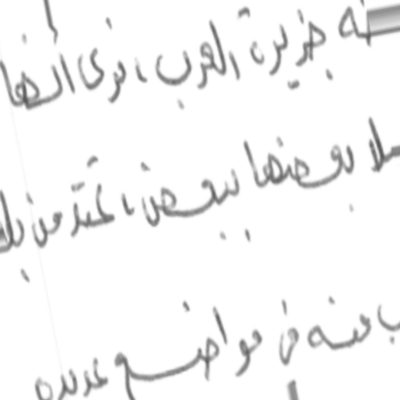 جزيرة العرب، نرى أنها
بعضها ببعض، تمتد من
منه في مواضع عديدة